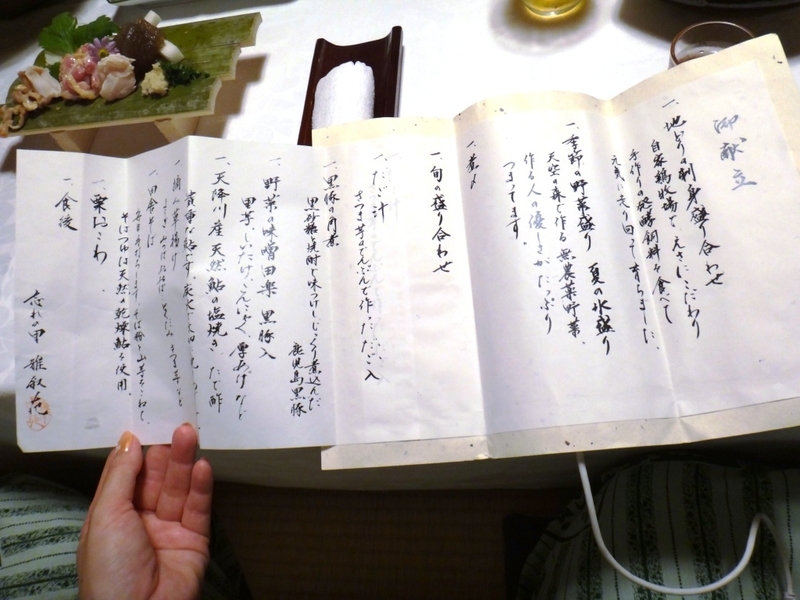 御献立
一、地どりの刺身盛り合わせ
自家鶏牧場で、えさにこだわり
手作りの発酵飼料を食べて
元気に走り回って育ちました。
一、季節の野菜盛り 夏の氷盛り
天空の森で作る無農薬野菜、
作る人の優しさがたっぷり
つまってます。
一、煮〆
一、旬の盛り合わせ
一、だご汁
さつま芋のでんぷんで作っただご入
一、黒豚の角煮
黒砂糖と焼酎で味つけしじっくり煮込んだ
鹿児島黒豚
一、野菜の味噌田楽 黒豚入
里芋、しいたけ、こんにゃく、厚あげなど
一、天降川産天然鮎の塩焼き、たで酢
貴重な鮎です。
一、摘み草揚げ
一、田舎そば
そばつゆは天然の乾燥鮎を使用、
一、栗おこわ、
一、食後
忘れの里 雅叙苑